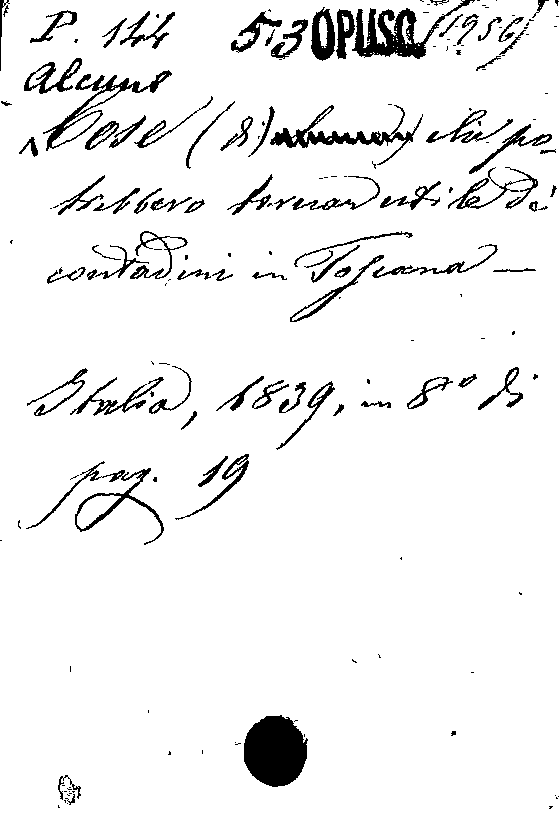 P. 144 573 OPUSC. (1956)
Alcune
Cose (di) che po-
trebbero tornar utile di
contadini in Toscana —
Italia, 1839, in 8° di
pag. 19